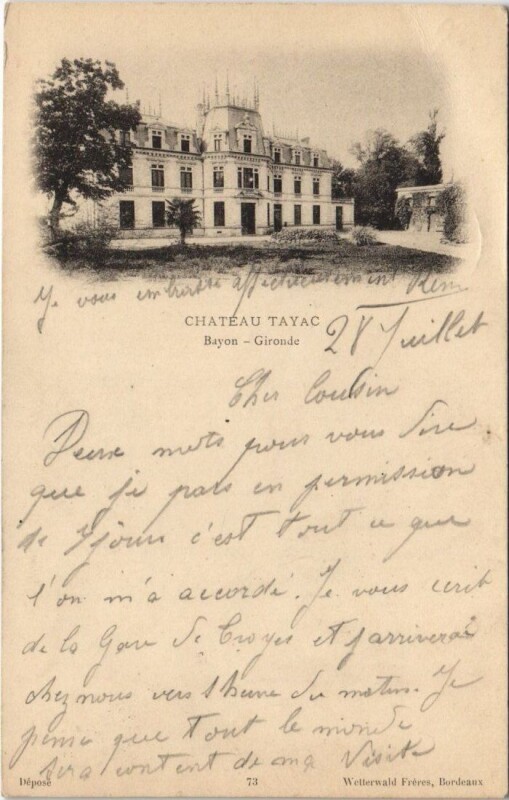 Je vous embrasse affectueusement Rémi
CHATEAU TAYAC
Bayon - Gironde
28 Juillet
Cher Cousin
Deux mots pour vous dire
que je pars en permission
de 7 jours c'est tout ce que
l'on m'a accordé. Je vous écrit
de la Gare de Troyes et j'arriverai
chez nous vers 1 heure du matin. Je
pense que tout le monde
sera content de ma Visite
Déposé 73 Wetterwald Frères, Bordeaux